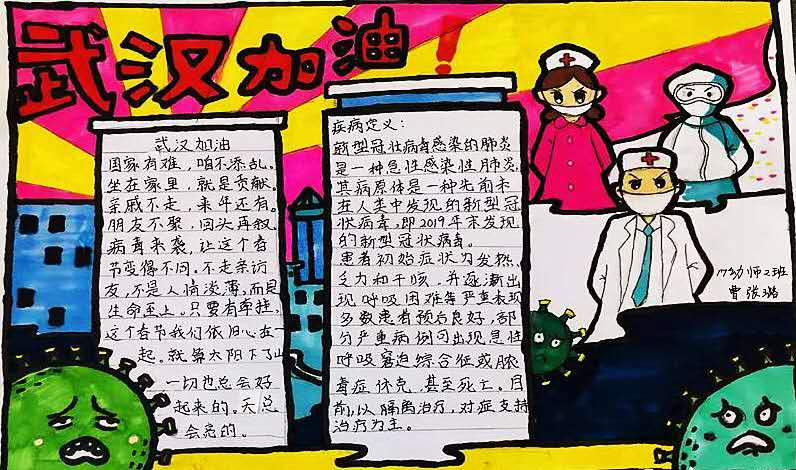 武汉加油!
武汉加油
国家有难，咱不添乱。
坐在家里，就是贡献。
亲戚不走，来年还有。
朋友不聚，回头再叙。
病毒来袭，让这个春
节变得不同，不走亲访
友，不是人情淡薄，而是
生命至上。只要有牵挂，
这个春节我们依旧心在一
起。就算太阳下了山
一切也总会好
起来的。天总
会亮的。
疾病定义：
新型冠状病毒感染的肺炎
是一种急性感染性肺炎，
其病原体是一种先前未
在人类中发现的新型冠
状病毒，即2019年末发现
的新型冠状病毒。
患者初始症状为发热，
乏力和干咳，并逐渐出
现呼吸困难等严重表现
多数患者预后良好，部
分严重病例可出现急性
呼吸窘迫综合征或脓
毒症休克，甚至死亡。目
前，以隔离治疗，对症支持
治疗为主。
17幼师2班
曹张璐